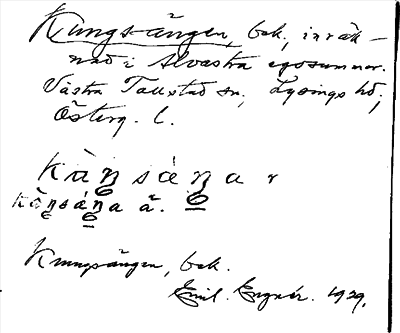 Kungs-ängen, bek., inräk-
nad i Alvastra egosummor.
Västra Tollstad sn, Lysings hd,
Österg. l.
Kungsängen, bek.
Emil Engnér. 1929.